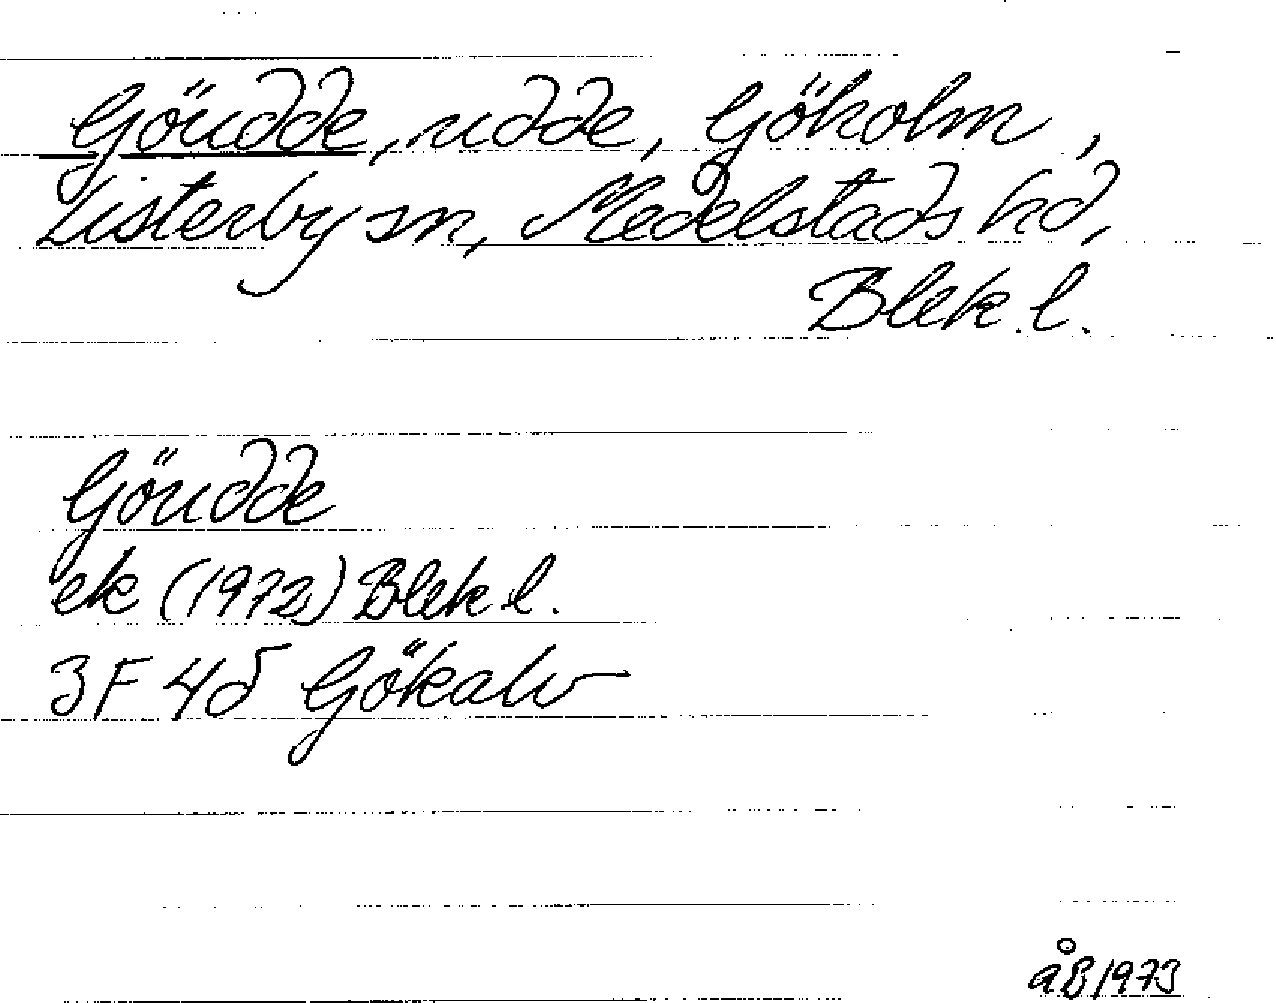 Göudde, udde, Göholm,
Listerby sn, Medelstads hd,
Blek. l.
Göudde
ek (1972) Blek l.
3F 4d Gökalv
åB 1973